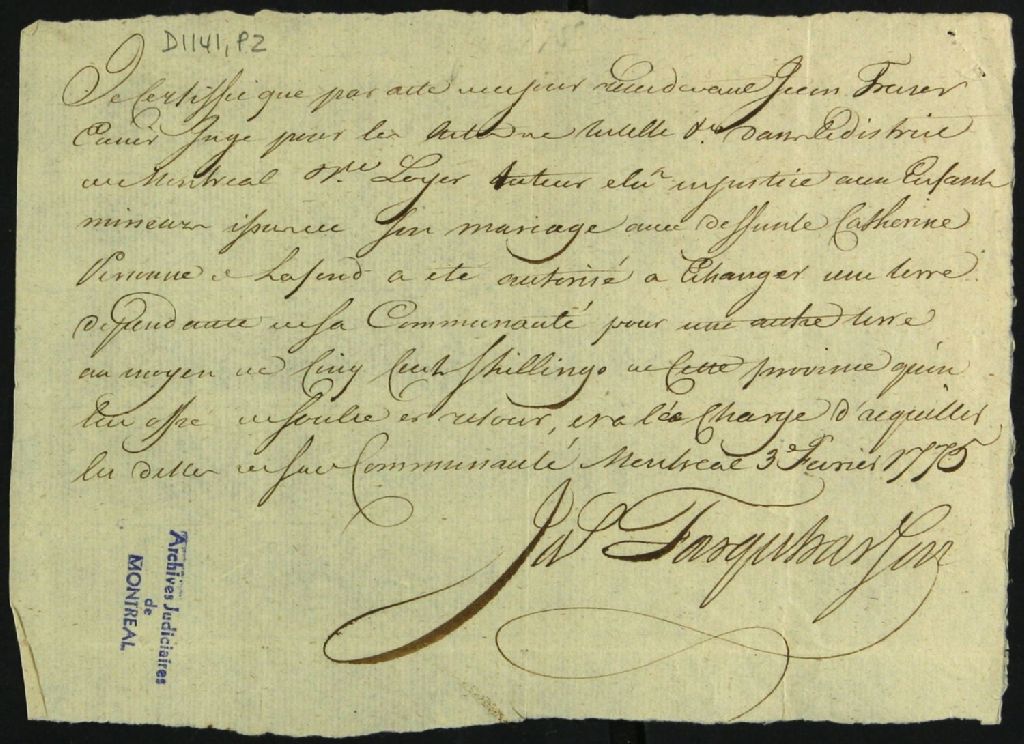 D1141, P2
Je Certiffie que par acte de ce jour rendu devant Jean Fraser
Ecuier Juge pour les actes de tutelle &c dans le district
de Montreal Nic. Loyer tuteur elu en justice aux Enfants
mineurs issus de son mariage avec deffunte Catherine
de Lafond a eté autorisé a Echanger une terre
dependante de sa Communauté pour une autre terre
au moyen de Cinq Cents Shillings de Cette province qu'on
lui offre de Soulte et retour, et a la Charge d'acquitter
les dettes de sa de Communauté Montreal 3e Fevrier 1775
Jas Farquharson
Archives Judiciaires
de
MONTREAL